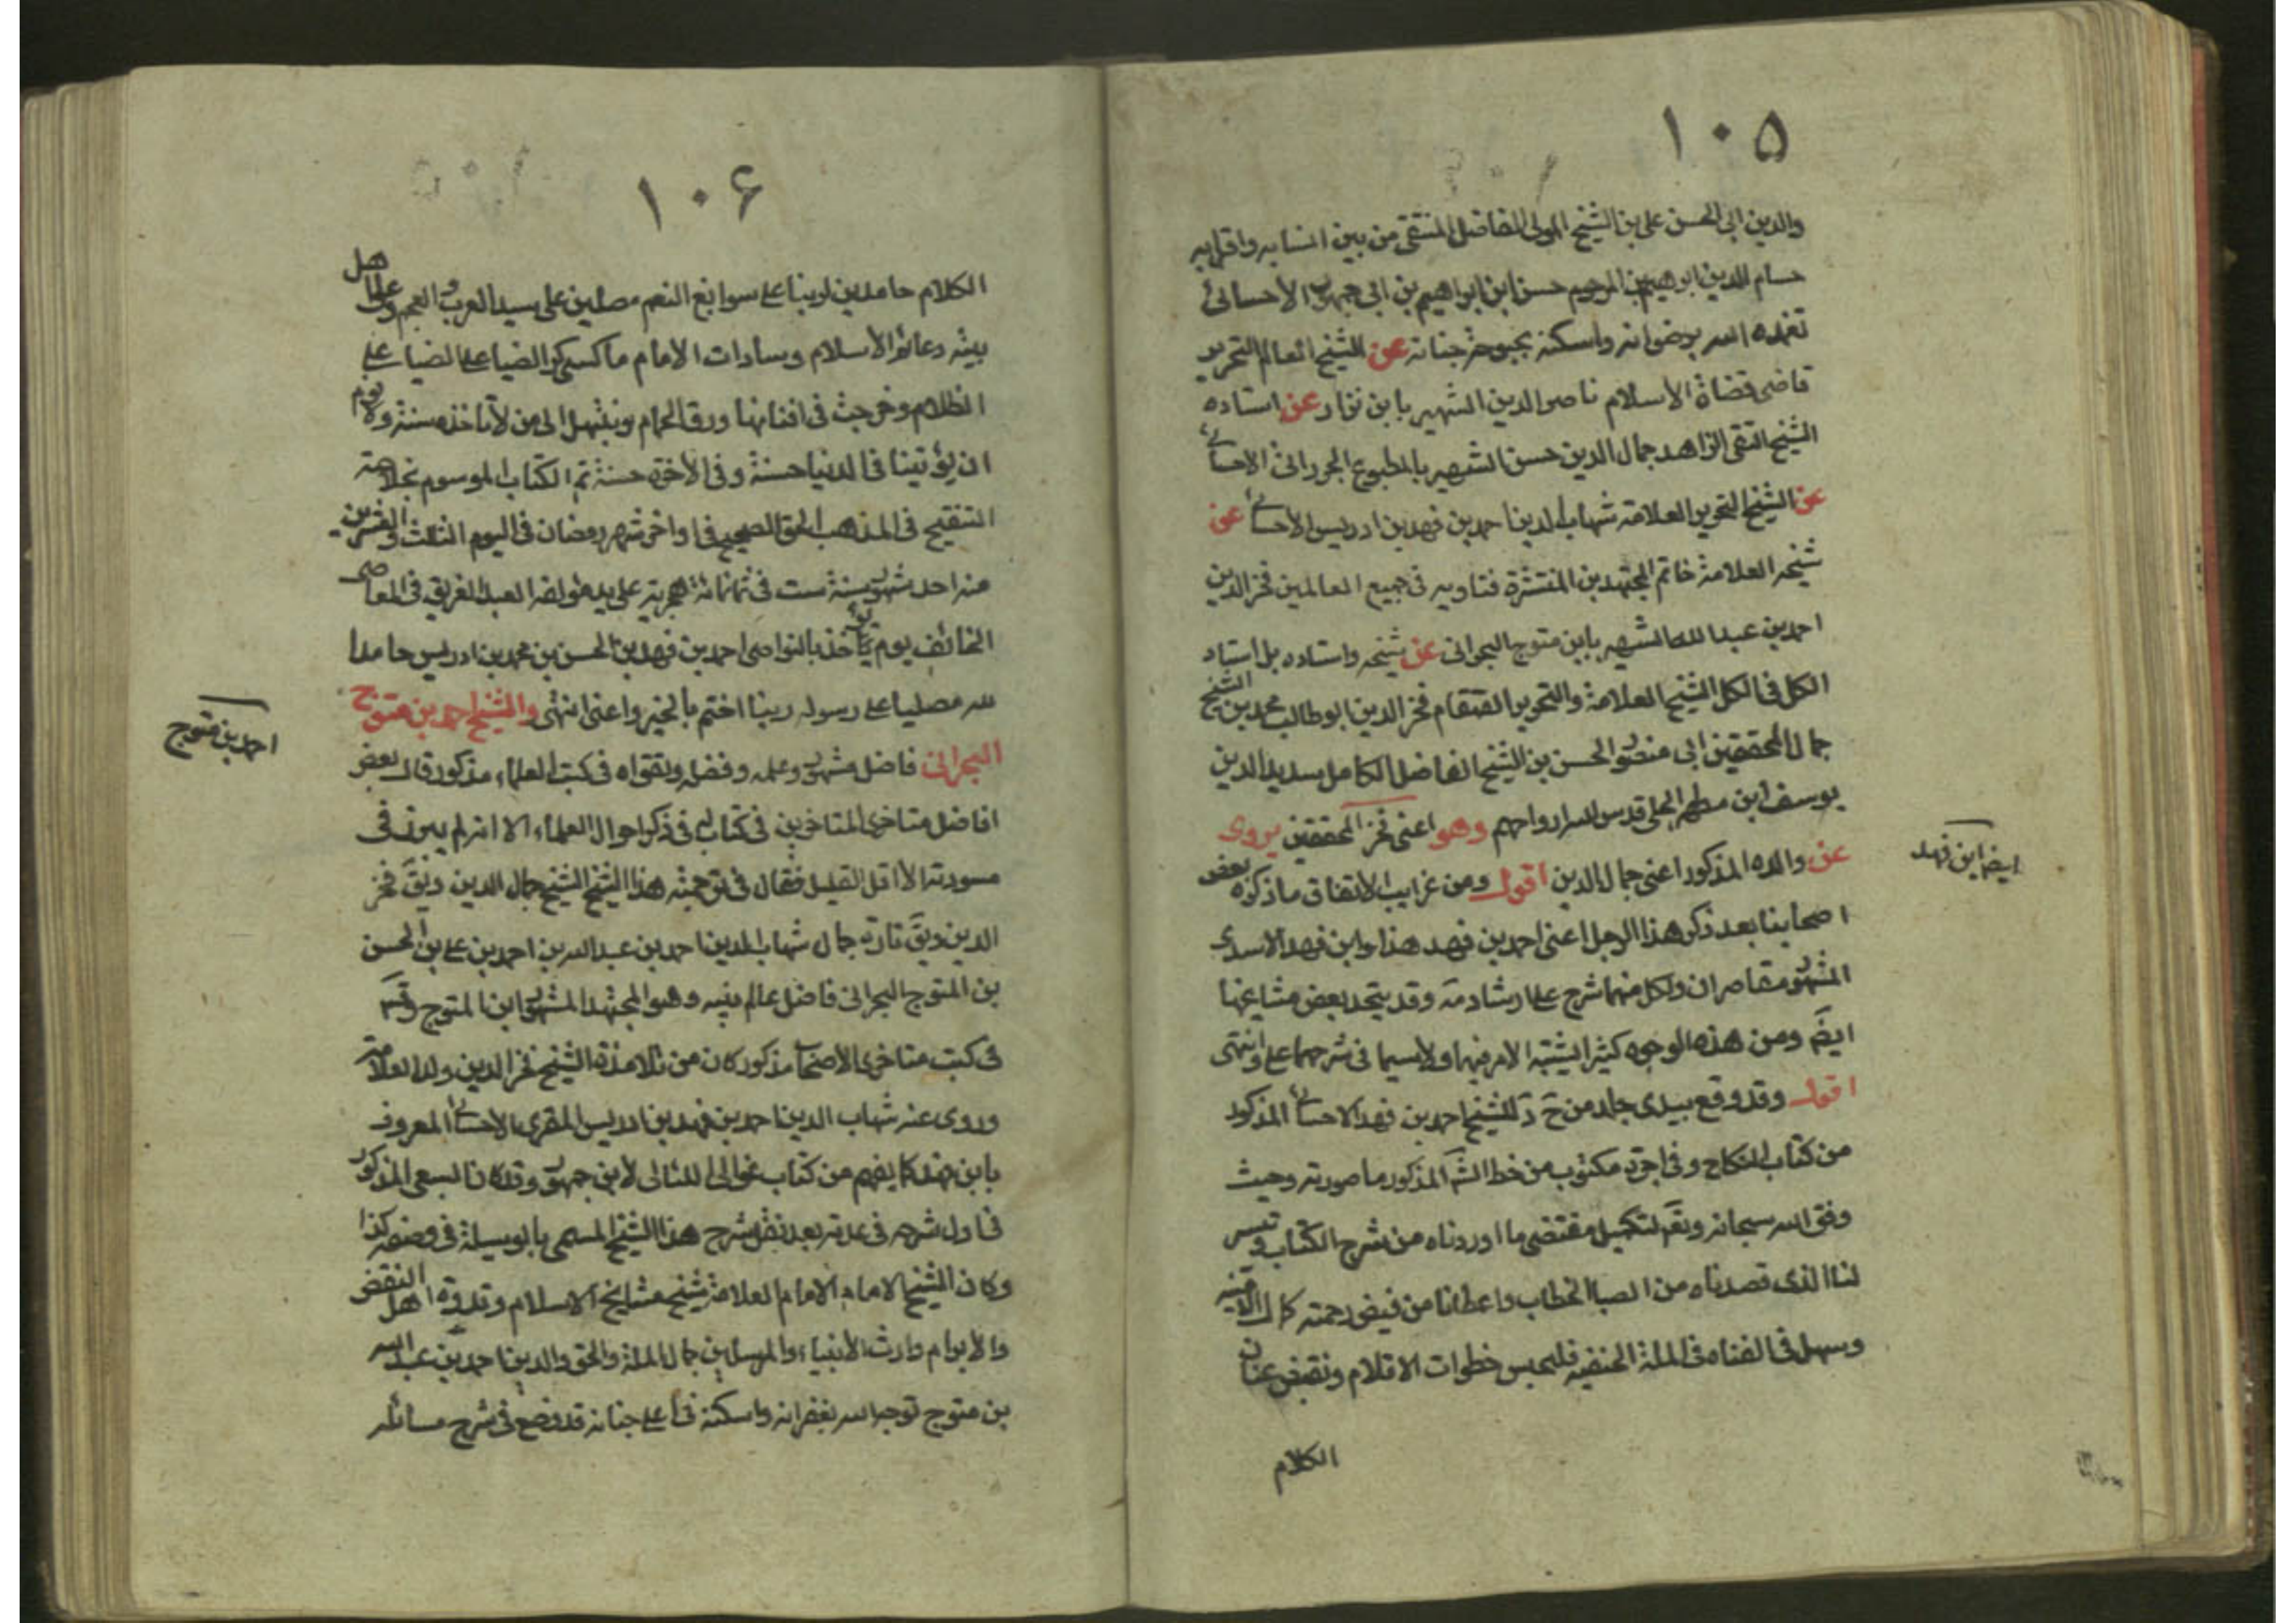 ١٠٥
والدين ابي الحسن علي بن الشيخ المولى الفاضل المتقي من بين انسابه واقرابه
حسام الدين ابراهيم بن المرحوم حسن ابن ابراهيم بن ابي جمهور الاحسائي
تغمده الله برضوانه واسكنه بحبوحة جنانه عن الشيخ العالم النحرير
قاضي قضاة الاسلام ناصر الدين الشهير بابن نزار عن استاده
الشيخ التقي الزاهد جمال الدين حسن الشهير بالمطبوع الجرواني الاحسائي
عن الشيخ النحرير العلامة شهاب الدين احمد بن فهد بن ادريس الاحسائي عن
شيخه العلامة خاتم المجتهدين المنتشرة فتاويه في جميع العالمين فخر الدين
احمد بن عبد الله الشهير بابن متوج البحراني عن شيخه واستاده بل استاد
الكل في الكل الشيخ العلامة والنحرير القمقام فخر الدين ابو طالب محمد بن الشيخ
جمال المحققين ابي منصور الحسن بن الشيخ الفاضل الكامل سديد الدين
يوسف ابن مطهر الحلي قدس الله ارواحهم وهو اعني فخر المحققين يروي
عن والده المذكور اعني جمال الدين اقول ومن غرايب الاتفاق ما ذكره بعض
ايضا ابن فهد
اصحابنا بعد ذكر هذا الرجل اعني احمد بن فهد هذا وابن فهد الاسدي
المشهور متعاصران ولكل منهما شرح على ارشاد مه وقد يتحد بعض مشايخهما
ايضَ ومن هذه الوجوه كثيرا يشتبه الامر فيهما ولا سيما في شرحهما على د انتهى
اقول وقد وقع بيدي جلد من ح د للشيخ احمد بن فهد الاحسائي المذكور
من كتاب النكاح وفي اخره مكتوب من خط الشَ المذكور ما صورته وحيث
وفق الله سبحانه وتعَ لتكميل مقتضى ما اوردناه من شرح الكتاب وتيسر
لنا الذي قصدناه من الخطاب واعطانا من فيض رحمته كمال الامنية
وسهل في الملة الحنفيه فليحبس خطوات الاقلام ونقبض عنان
الكلام
١٠۶
الكلام حامدين لربنا على سوابغ النعم مصلين على سيد العرب والعجم وعلى اهل
بيته دعائم الاسلام وسادات الانام ما كسى كر الضيا على
الظلام في افنانها ورق الحمام ونبتهل الى من لا تاخذه سنة ولا نوم
ان يؤتينا في الدنيا حسنة وفي الاخرة حسنة تم الكتاب الموسوم بخلاصة
التنقيح في المذهب الحق الصحيح في اواخر شهر رمضان في اليوم الثالث والعشرين
منه احد شهور سنة ست في ثمانمائة هجرية على يد مؤلفه العبد الغريق في المعاصي
الخائف يوم يؤخذ بالنواصي احمد بن فهد بن الحسن بن محمد بن ادريس حامدا
لله مصليا على رسوله ربنا اختم بالخير واعني انتهى والشيخ احمد بن متوج
احمد بن متوج
البحراني فاضل مشهور وعلمه وفضله وتقواه في كتب العلماء مذكور قال بعض
افاضل متاخري المتاخرين في كتاب له في ذكر احوال العلماء الا انه لم يبرز في
مسودته الا اقل القليل فقال في ترجمة هذا الشيخ الشيخ جمال الدين ويقَ فخر
الدين ويقَ تارة جمال شهاب الدين احمد بن عبد الله بن احمد بن علي بن الحسن
بن المتوج البحراني فاضل عالم نبيه وهو المجتهد المشهور ابن المتوج وقوله
في كتب متاخري الاصحاب مذكور كان من تلامذة الشيخ فخر الدين ولد العلامة
وروى عنه شهاب الدين احمد بن فهد بن ادريس المقري الاحسائي المعروف
بابن فهد كما يفهم من كتاب غوالي اللئالي لابن جمهور وقد كان السبعي المذكور
في اول شرحه في عد بعد نقل شرح هذا الشيخ المسمى بالوسيلة في وصفه كذا
وكان الشيخ الامام العلامة شيخ مشايخ الاسلام وقدوة اهل النقض
والابرام وارث الانبياء والمرسلين جمال الملة والحق والدين احمد بن عبد الله
بن متوج توجه الله بغفرانه واسكنه في اعلى جنانه قد وضع في شرح مسائله